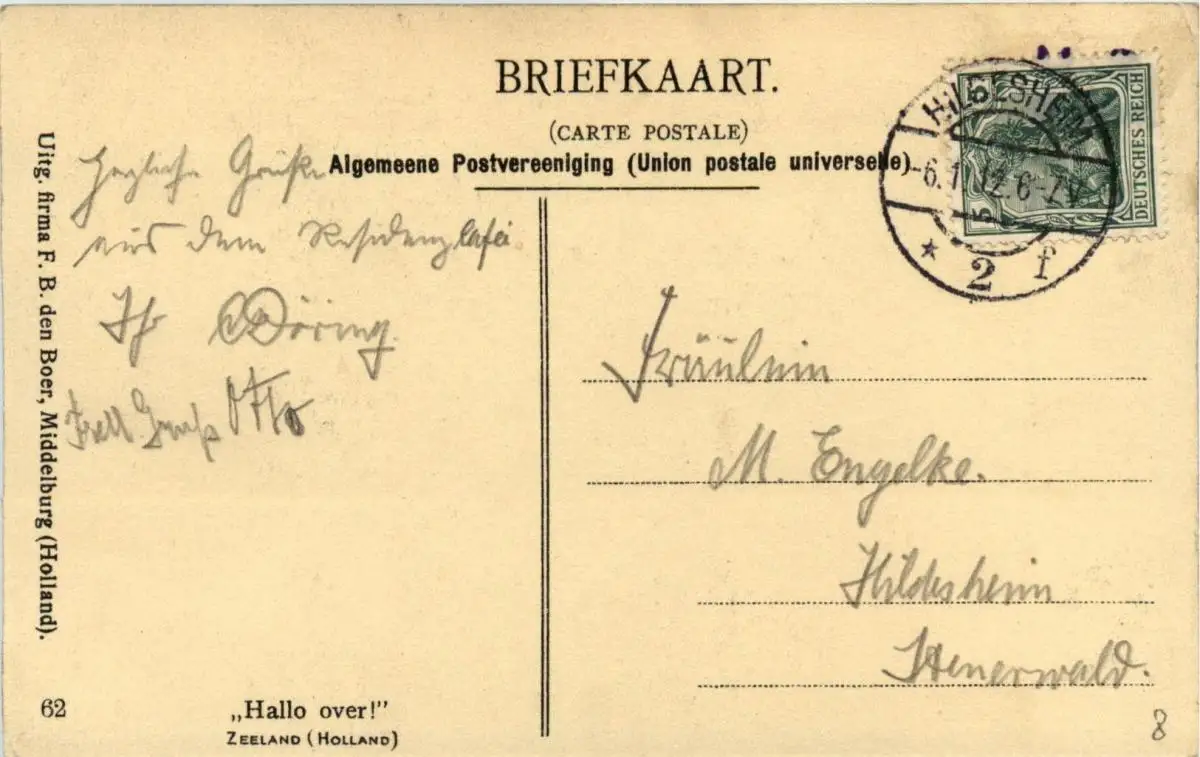 BRIEFKAART.
(CARTE POSTALE)
Algemeene Postvereeniging (Union postale universelle)
HILDESHEIM
-6.1.12.6-7V.
* 2 f
DEUTSCHES REICH
Herzliche Grüße
aus dem Residenzkafé
Döring
Gruß Otto
Fräulein
M. Engelke.
Hildesheim
Uitg. firma F. B. den Boer, Middelburg (Holland).
62
„Hallo over!"
ZEELAND (HOLLAND)
8